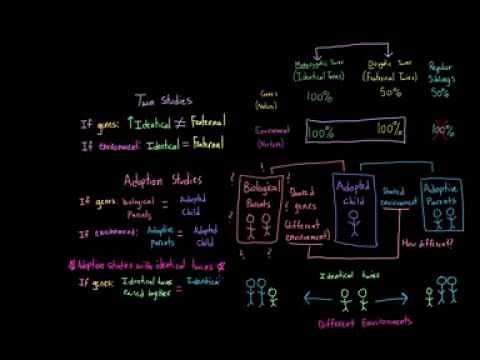 Twin Studies
If genes: ↑Identical ≠ Fraternal
If environment: Identical = Fraternal
Adoption Studies
If genes: biological Parents = Adopted Child
If environment: Adoptive parents = Adopted Child
Adoption studies with identical twins
If genes: Identical twins raised together = Identical
Monozygotic Twins (Identical Twins)
Dizygotic Twins (Fraternal Twins)
Regular Siblings
Genes (Nature) 100% 50% 50%
Environment (Nurture) 100% 100% 100%
Biological Parents
Shared genes
(Different environment)
Adopted Child
Shared environment
Adoptive Parents
How different??
Identical twins
Different Environments